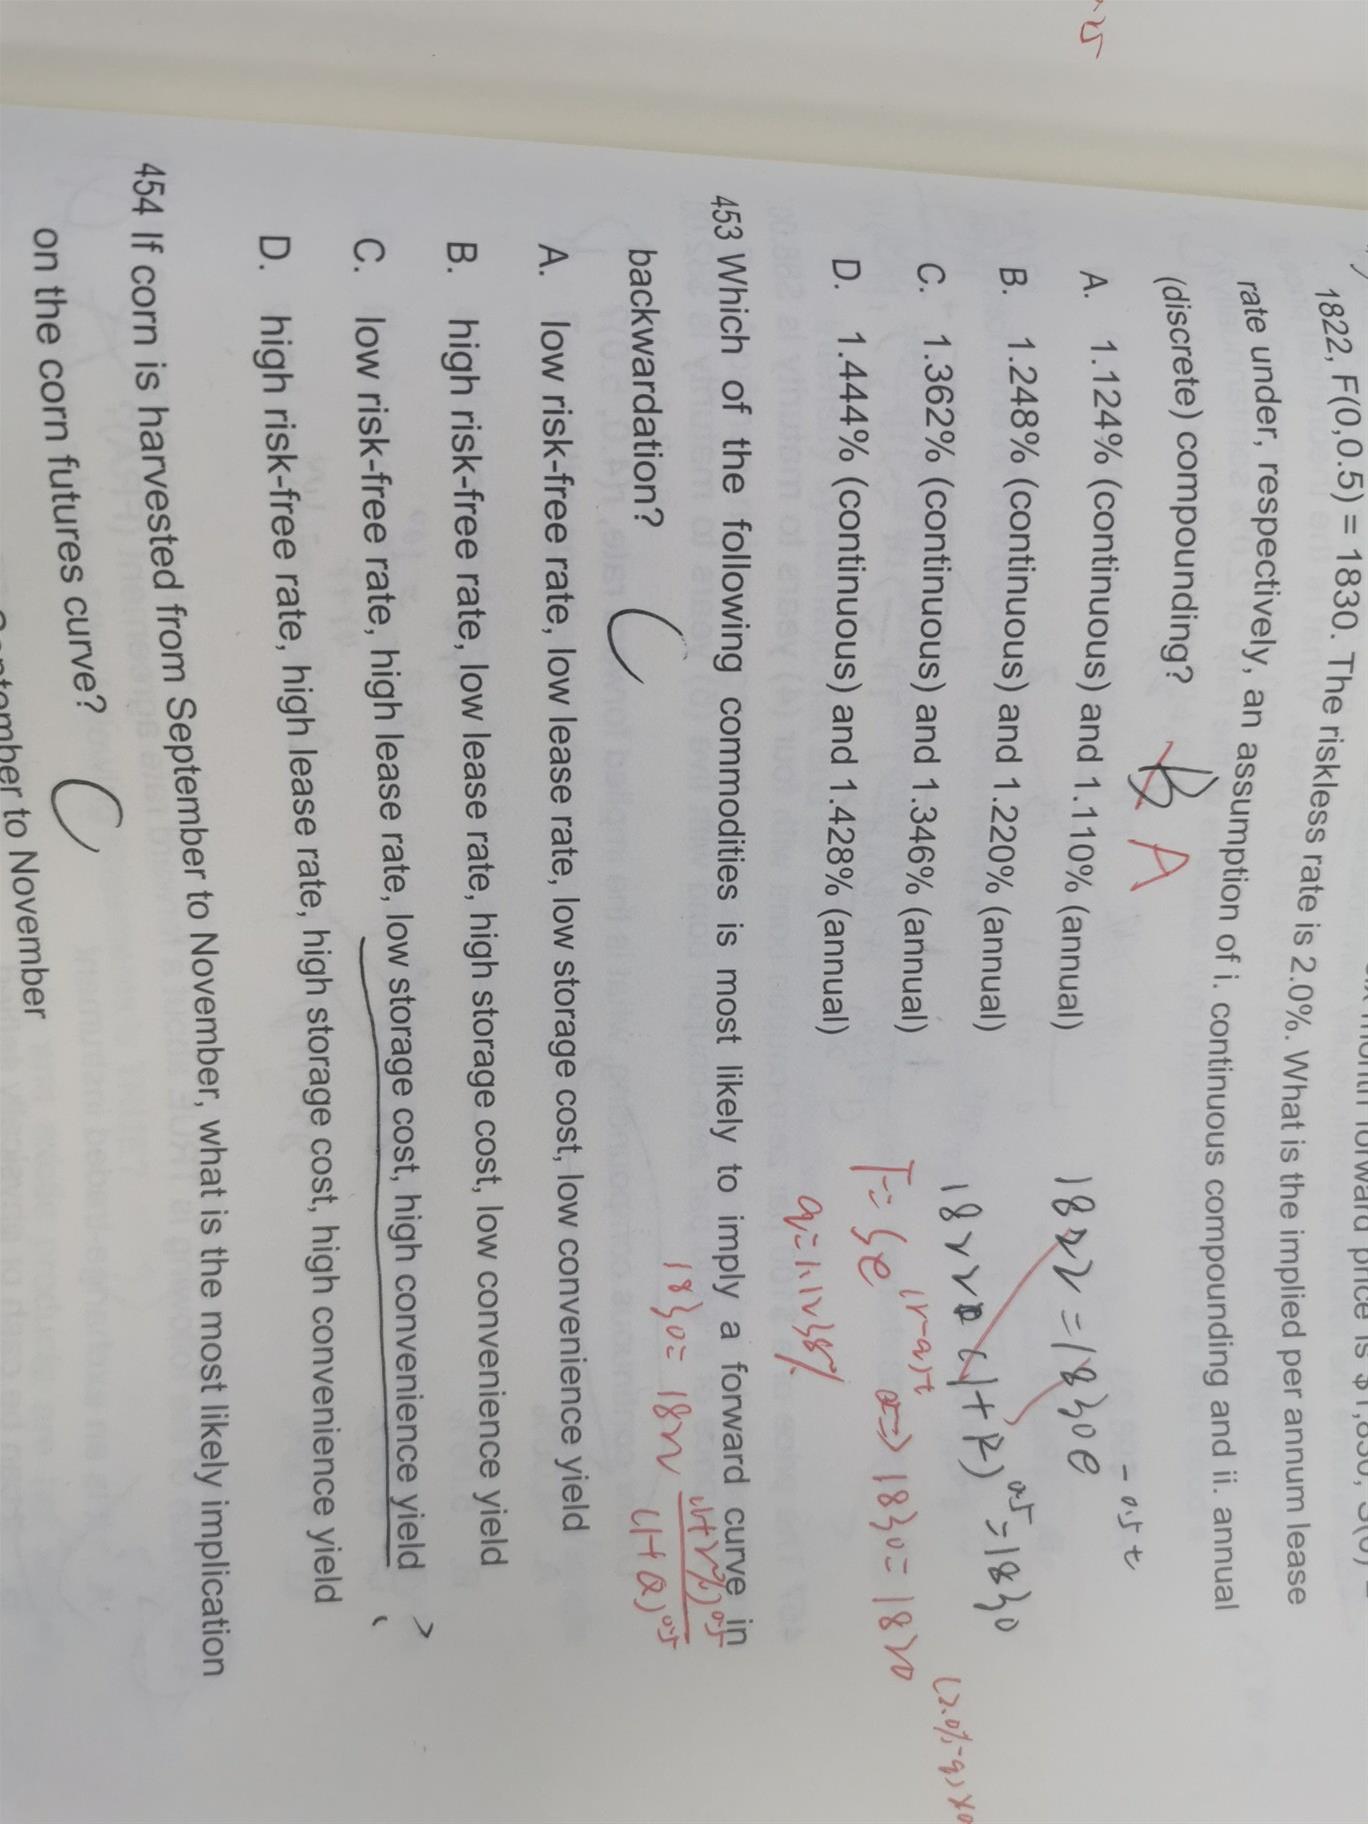 25
1822, F(0,0.5) = 1830. The riskless rate is 2.0%. What is the implied per annum lease
rate under, respectively, an assumption of i. continuous compounding and ii. annual
(discrete) compounding? B A
A. 1.124% (continuous) and 1.110% (annual)
B. 1.248% (continuous) and 1.220% (annual)
C. 1.362% (continuous) and 1.346% (annual)
D. 1.444% (continuous) and 1.428% (annual)
1822 = 1830e
-0.5t
1822 (1+R)^0.5 = 1830
F = Se^(r-q)t => 1830 = 1820
(2.0%-q)×0
q = 1.1238%
453 Which of the following commodities is most likely to imply a forward curve in
backwardation? C
1830 = 1822 (1+2%)^0.5
(1+Q)^0.5
A. low risk-free rate, low lease rate, low storage cost, low convenience yield
B. high risk-free rate, low lease rate, high storage cost, low convenience yield
C. low risk-free rate, high lease rate, low storage cost, high convenience yield
D. high risk-free rate, high lease rate, high storage cost, high convenience yield
454 If corn is harvested from September to November, what is the most likely implication
on the corn futures curve? C
to November